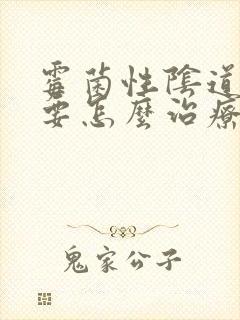 霉菌性陰道
要怎麼治療
鬼家公子